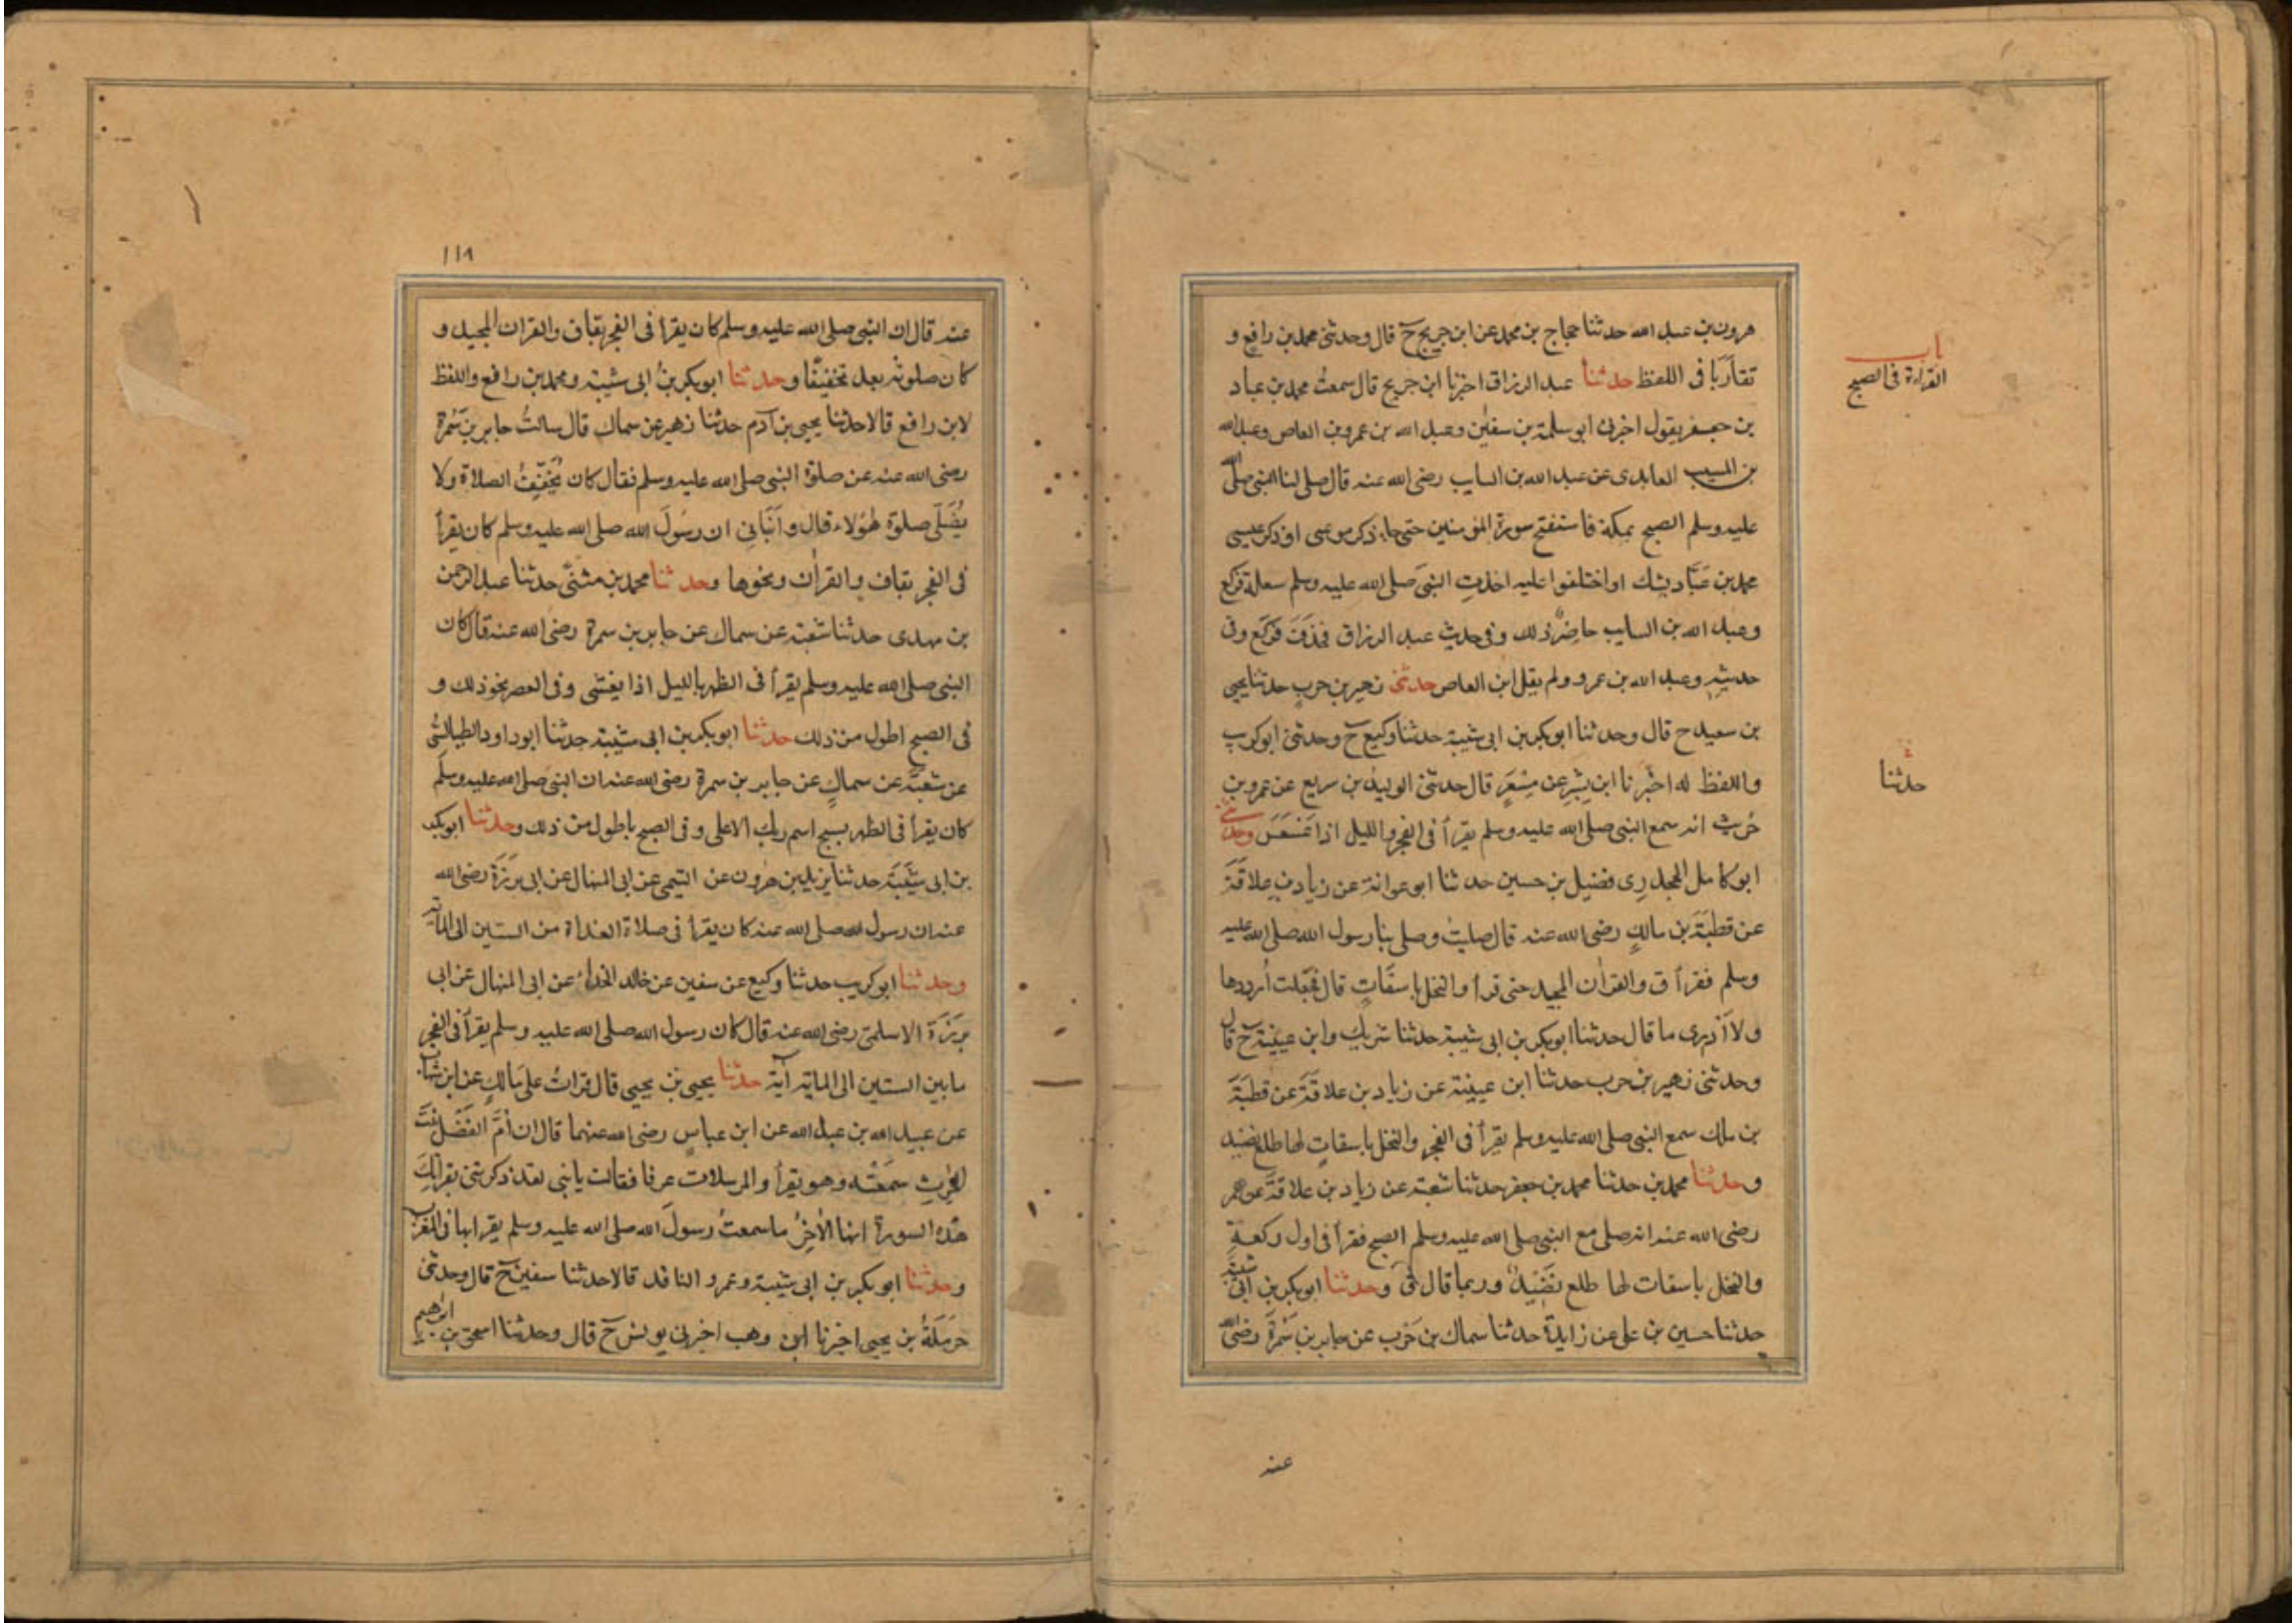 باب
القراءة فى الصبح
هرون بن عبد الله حدثنا حجاج بن محمد عن ابن جريج ح قال وحدثنى محمد بن رافع و
تقاربا فى اللفظ حدثنا عبد الرزاق اخبرنا ابن جريج قال سمعت محمد بن عباد
بن جعفر يقول اخبرنى ابو سلمة بن سفين وعبد الله بن عمرو بن العاص وعبد الله
بن المسيب العابدى عن عبد الله بن السايب رضى الله عنه قال صلى لنا النبى صلى الله
عليه وسلم الصبح بمكة فاستفتح سورة المؤمنين حتى جاء ذكر موسى او ذكر عيسى
محمد بن عباد يشك او اختلفوا عليه اخذت النبى صلى الله عليه وسلم سعلة فركع
وعبد الله بن السايب حاضر ذلك وفى حديث عبد الرزاق فحذف فركع وفى
حديثه وعبد الله بن عمرو ولم يقل ابن العاص حدثنى زهير بن حرب حدثنا يحيى
بن سعيد ح قال وحدثنا ابو بكر بن ابى شيبة حدثنا وكيع ح وحدثنى ابو كريب
حدثنا
واللفظ له اخبرنا ابن بشر عن مسعر قال حدثنى الوليد بن سريع عن عمرو بن
حريث انه سمع النبى صلى الله عليه وسلم يقرأ فى الفجر والليل اذا عسعس وحدثنى
ابو كامل الجحدرى فضيل بن حسين حدثنا ابو عوانة عن زياد بن علاقة
عن قطبة بن مالك رضى الله عنه قال صليت وصلى بنا رسول الله صلى الله عليه
وسلم فقرأ ق والقرآن المجيد حتى قرأ والنخل باسقات قال فجعلت أرددها
ولا أدرى ما قال حدثنا ابو بكر بن ابى شيبة حدثنا شريك وابن عيينة ح قال
وحدثنى زهير بن حرب حدثنا ابن عيينة عن زياد بن علاقة عن قطبة
بن مالك سمع النبى صلى الله عليه وسلم يقرأ فى الفجر والنخل باسقات لها طلع نضيد
وحدثنا محمد بن حدثنا محمد بن جعفر حدثنا شعبة عن زياد بن علاقة عن عمه
رضى الله عنه انه صلى مع النبى صلى الله عليه وسلم الصبح فقرأ فى اول ركعة
والنخل باسقات لها طلع نضيد وربما قال ق وحدثنا ابو بكر بن ابى شيبة
حدثنا حسين بن على عن زايدة حدثنا سماك بن حرب عن جابر بن سمرة رضى الله
عنه
١١٨
عنه قال ان النبى صلى الله عليه وسلم كان يقرأ فى الفجر بقاف والقران المجيد و
كان صلوته بعد تخفيفا وحدثنا ابو بكر بن ابى شيبة ومحمد بن رافع واللفظ
لابن رافع قالا حدثنا يحيى بن آدم حدثنا زهير عن سماك قال سالت جابر بن سمرة
رضى الله عنه عن صلوة النبى صلى الله عليه وسلم فقال كان يخفف الصلاة ولا
يصلى صلوة هؤلاء قال وأنبانى ان رسول الله صلى الله عليه وسلم كان يقرأ
فى الفجر بقاف والقران ونحوها وحدثنا محمد بن مثنى حدثنا عبد الرحمن
بن مهدى حدثنا شعبة عن سماك عن جابر بن سمرة رضى الله عنه قال كان
النبى صلى الله عليه وسلم يقرأ فى الظهر بالليل اذا يغشى وفى العصر نحو ذلك و
فى الصبح اطول من ذلك حدثنا ابو بكر بن ابى شيبة حدثنا ابو داود الطيالسى
عن شعبة عن سماك عن جابر بن سمرة رضى الله عنه ان النبى صلى الله عليه وسلم
كان يقرأ فى الظهر بسبح اسم ربك الاعلى وفى الصبح باطول من ذلك وحدثنا ابو بكر
بن ابى شيبة حدثنا يزيد بن هرون عن التيمى عن ابى المنهال عن ابى برزة رضى الله
عنه ان رسول الله صلى الله عنه كان يقرأ فى صلاة الغداة من الستين الى الماية
وحدثنا ابو كريب حدثنا وكيع عن سفين عن خالد الحذاء عن ابى المنهال عن ابى
برزة الاسلمى رضى الله عنه قال كان رسول الله صلى الله عليه وسلم يقرأ فى الفجر
ما بين الستين الى الماية آية حدثنا يحيى بن يحيى قال قرات على مالك عن ابن شهاب
عن عبيد الله بن عبد الله عن ابن عباس رضى الله عنهما قال ان أم الفضل بنت
الحرث سمعته وهو يقرأ والمرسلات عرفا فقالت يا بنى لقد ذكرتنى بقراتك
هذه السورة انها لاخر ما سمعت رسول الله صلى الله عليه وسلم يقرا بها فى المغرب
وحدثنا ابو بكر بن ابى شيبة وعمرو الناقد قالا حدثنا سفين ح قال وحدثنى
حرملة بن يحيى اخبرنا ابن وهب اخبرنى يونس ح قال وحدثنا اسحق بن ابرهيم